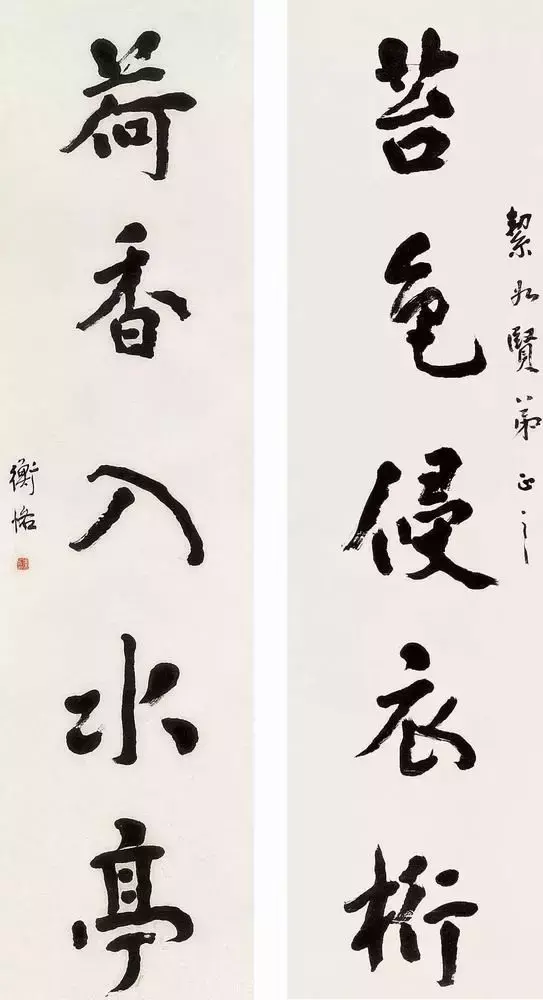 絜賢弟正之
苔色侵衣桁
荷香入水亭
衡恪